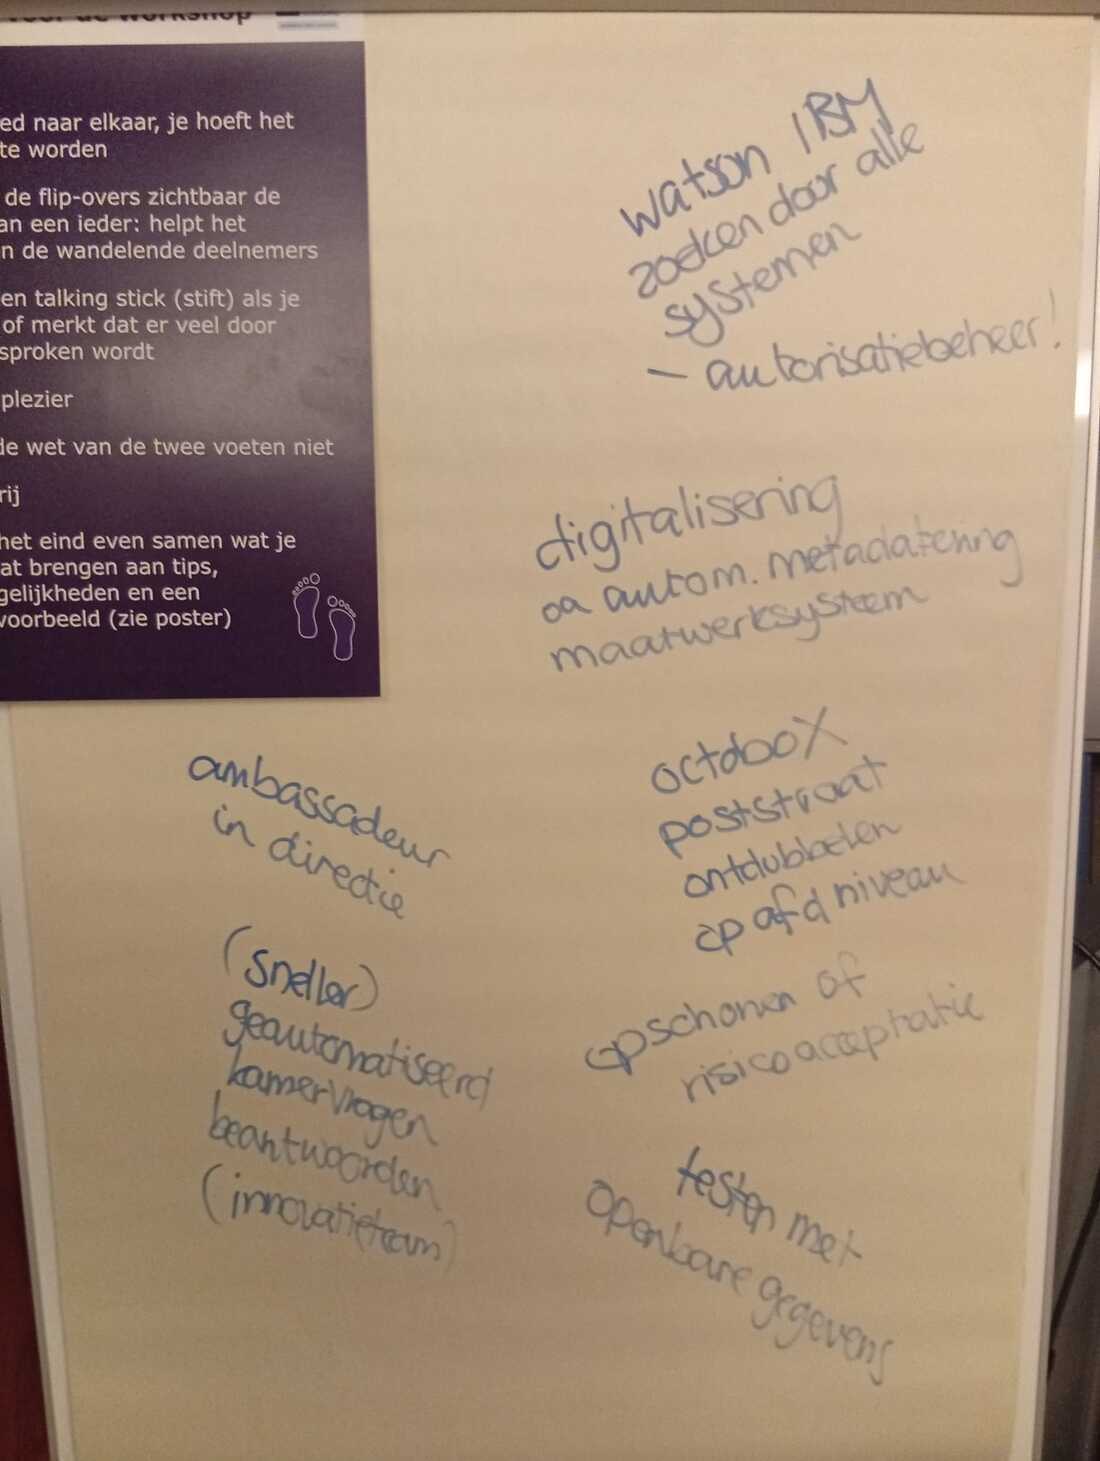 voor de workshop
ed naar elkaar, je hoeft het
te worden
de flip-overs zichtbaar de
an een ieder: helpt het
n de wandelende deelnemers
en talking stick (stift) als je
of merkt dat er veel door
sproken wordt
plezier
de wet van de twee voeten niet
rij
het eind even samen wat je
at brengen aan tips,
gelijkheden en een
voorbeeld (zie poster)
watson IBM
zoeken door alle
systemen
- autorisatiebeheer!
digitalisering
oa autom. metadatering
maatwerksysteem
octobox
poststraat
ontdubbelen
op afd niveau
opschonen of
risicoacceptatie
testen met
openbare gegevens
ambassadeur
in directie
(sneller)
geautomatiseerd
kamervragen
beantwoorden
(innovatieteam)